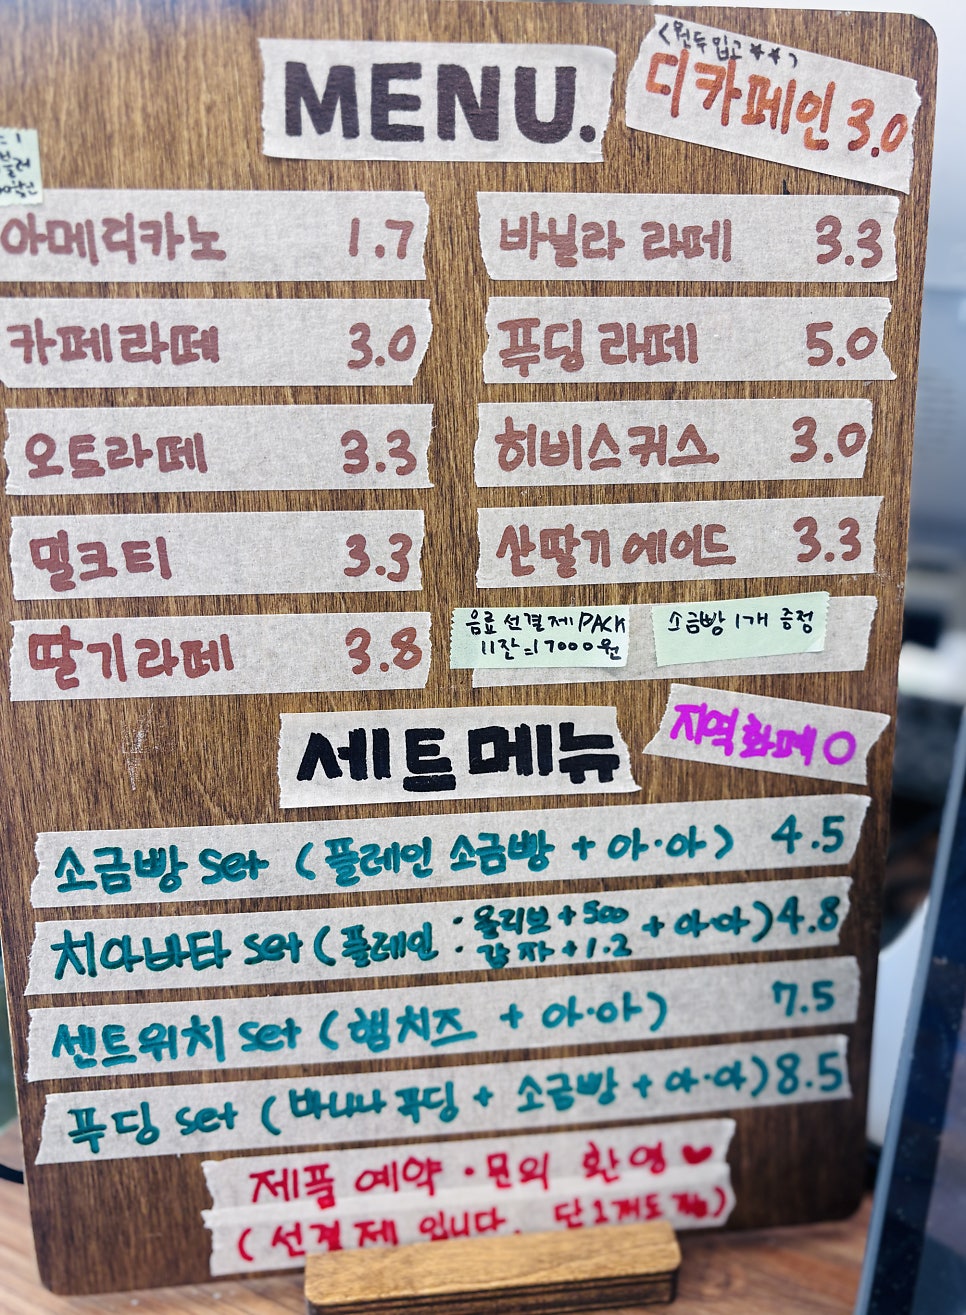 MENU.
<원두입고★★>
디카페인 3.0
아메리카노 1.7
바닐라 라떼 3.3
카페라떼 3.0
푸딩라떼 5.0
오트라떼 3.3
히비스커스 3.0
밀크티 3.3
산딸기에이드 3.3
딸기라떼 3.8
음료 선결제 PACK
11잔=17000원
소금빵 1개 증정
세트메뉴
지역화폐 O
소금빵 set (플레인 소금빵 + 아·아) 4.5
치아바타 set (플레인 ·올리브+500 ·감자+1.2 + 아·아) 4.8
센트위치 set (햄치즈 + 아·아) 7.5
푸딩 set (바나나푸딩 + 소금빵 + 아·아) 8.5
제품 예약·문의 환영♥
(선결제 입니다. 단1개도